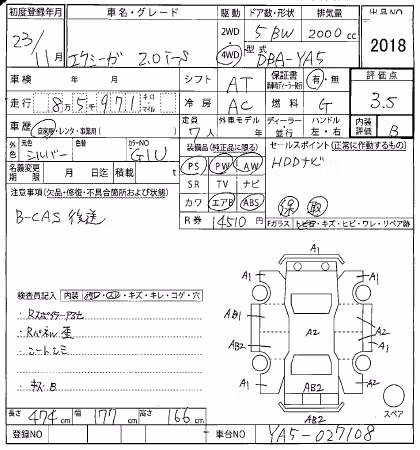 初度登録年月 車名・グレード 駆動 ドア数・形状 排気量 出品NO
23/11月 エクシーガ 2.0i-S 2WD 4WD 5 BW 2000cc 2018
型式 DBA-YA5
車検 年 月 シフト AT 保証書 有・無 評価点
走行 8万5千971 キロ・マイル 冷房 AC 燃料 G 3.5
車歴 自家用・レンタ・事業用( ) 定員 7人 外車モデル 年 ディーラー 並行 ハンドル 左・右 内装評価 B
外色 シルバー 元色 色替 カラーNO G1U 装備品(純正品に限る) セールスポイント(正常に作動するもの)
名義変更期限 月 日迄 積載 t PS PW AW HDDナビ
注意事項(欠品・修復・不具合箇所および状態) SR TV ナビ
B-CAS 後送 カワ エアB ABS 保 取
R券 14510円 Fガラス トビ石・キズ・ヒビ・ワレ・リペア跡
検査員記入 内装 ・キズ・キレ・コゲ・穴
・Rパネル歪
・シートシミ
・キズB
A1
A1 A1
AB1 A2 A2
AB2 A2 A1
A1 AB2 A1
AB2
スペア
長さ 474cm 幅 177cm 高さ 166cm
登録NO 車台NO YA5-027108